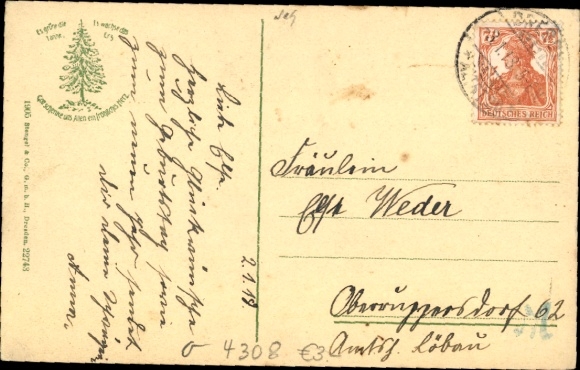 Es grüne die Tanne,
Es wachse das Erz
Gott schenke uns Allen ein fröhliches Herz
1905 Stengel & Co., G. m. b. H., Dresden. 22743
2.1.19.
Liebe Else.
Herzliche Glückwünsche
zum Geburtstag sowie
zum neuen Jahr sendet
dir deine
Anna.
7½ 7½
DEUTSCHES REICH
Fräulein
Else Weder
Oberruppersdorf 62
Amtsh. Löbau
4308 €3.